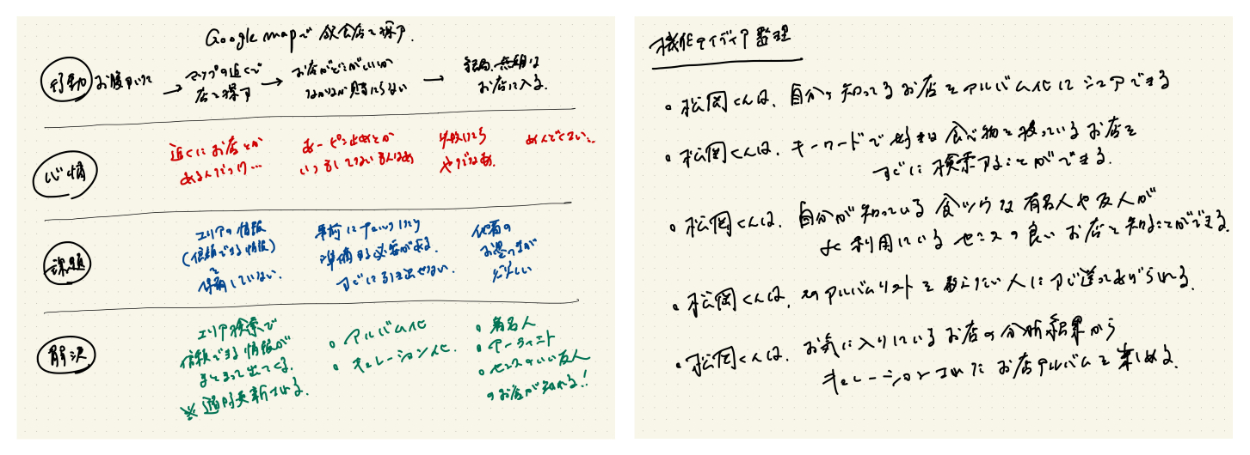 Google mapで飲食店を探す.
行動
お腹すいた
→ マップの近くで
店を探す
→ お店がどこがいいか
なかなか見つからない
→ 結局、無難な
お店に入る.
心情
近くにお店とか
あるんだっけ…
あーピン止めとか
いつもしてないもんなぁ
失敗したら
やだなあ.
めんどくさい…
課題
エリアの情報
(信頼できる情報)
を
保有していない.
事前にチェックしたり
準備する必要がある.
すぐに引き出せない.
他者の
お墨つきが
ほしい
解決
エリア検索で
信頼できる情報が
まとまって出てくる.
※随時更新される.
• アルバム化
• キュレーション化.
• 有名人
• アーティスト
• センスのいい友人
のお店が知れる!
機能アイディア整理
• 松岡くんは、自分の知ってるお店をアルバム化にシェアできる
• 松岡くんは、キーワードで好きな食べ物を扱っているお店を
すぐに検索することができる.
• 松岡くんは、自分が知っている食ツウな有名人や友人が
よく利用しているセンスの良いお店を知ることができる.
• 松岡くんは、そのアルバムリストを教えたい人にすぐ送ってあげられる.
• 松岡くんは、お気に入りしているお店の分析結果から
キュレーションされたお店アルバムを楽しめる.